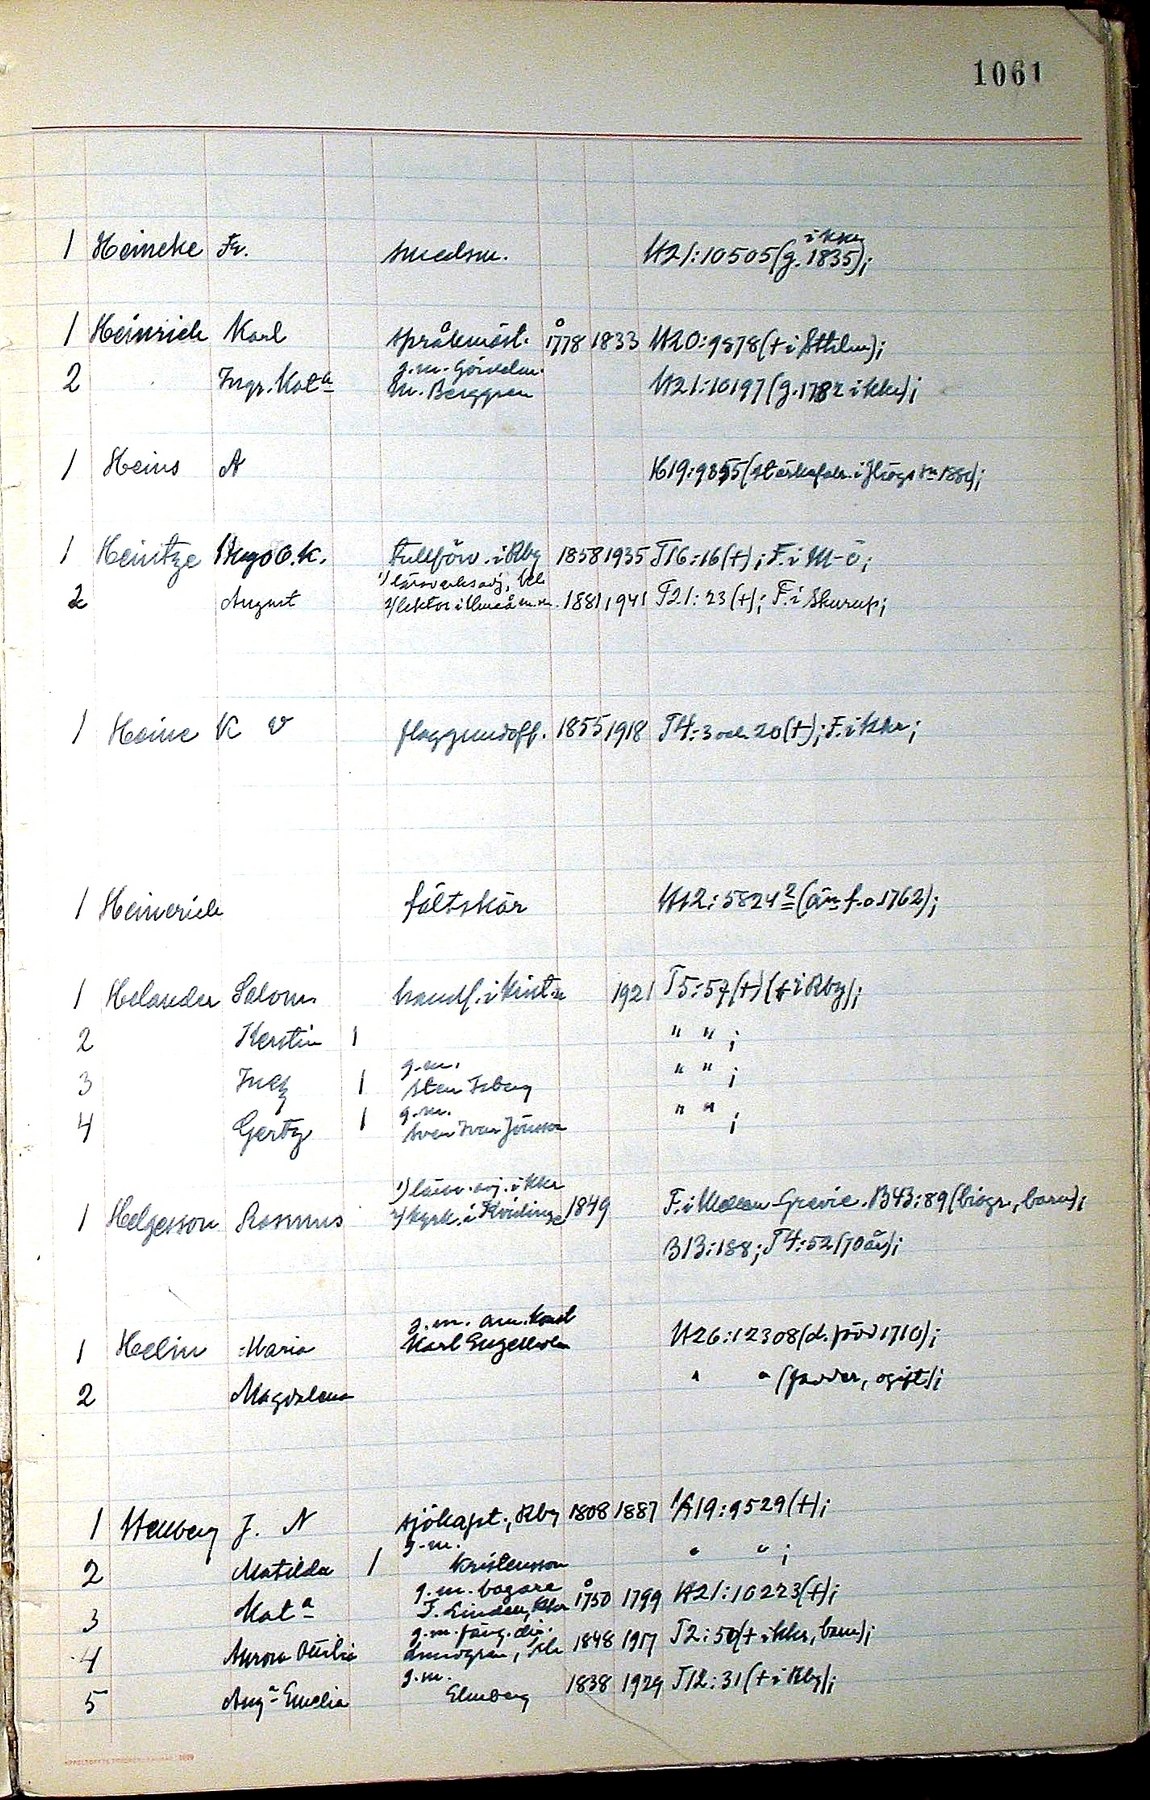 1061
1 Heineke Fr. smedsm. H21:10505 (g. 1835 i kkr);
1 Heinrich Karl språkmäst. å 1778 1833 H20:9878 (+ i Sthlm);
2 Ingr. Kat:a g.m. m. Berggren H21:10197 (g. 1782 i kkr);
1 Heins A H19:9855
1 Heintze Hugo O.K. tullförv. i Rby 1858 1935 T16:16 (+); F. i M-ö;
2 August 1) läroverksadj, 2) lektor i Umeå m.m. 1881 1941 T21:23 (+); F. i Skurup;
1 Heine K V flaggundoff. 1855 1918 T4:3 och 20 (+); F. i kkr;
1 Heinerich fältskär H12:5824 2 (än f. o 1762);
1 Helander Salom. handl. i 1921 T5:57 (+) (+ i Rby);
2 Kerstin 1 " " ;
3 Inez 1 g.m. Sten " " ;
4 Gertz 1 g.m. Sven Ivar Jönsson " " ;
1 Helgesson Rasmus 1) lärov. adj. i kkr 2) kyrk. i Kvidinge 1849 F. i Grevie. B43:89 (biogr., barn);
B13:188; T4:52 (70 år);
1 Helin Maria g.m. am. Karl Engelholm H26:12308 (d. född 1710);
2 Magdalena " " (fadder, ogift);
1 Hellberg J. N sjökapt., Rby 1808 1887 H19:9529 (+);
2 Matilda 1 g.m. Kristensson " " ;
3 Kat:a g.m. bagare F. Linden, kkr å 1750 1799 H21:10223 (+);
4 Aurora Otilia g.m. fäng. dir. Lundgren, 1848 1917 T2:50 (+ i kkr, barn);
5 Aug:a Emelia g.m. Elmberg 1838 1929 T12:31 (+ i Rby);